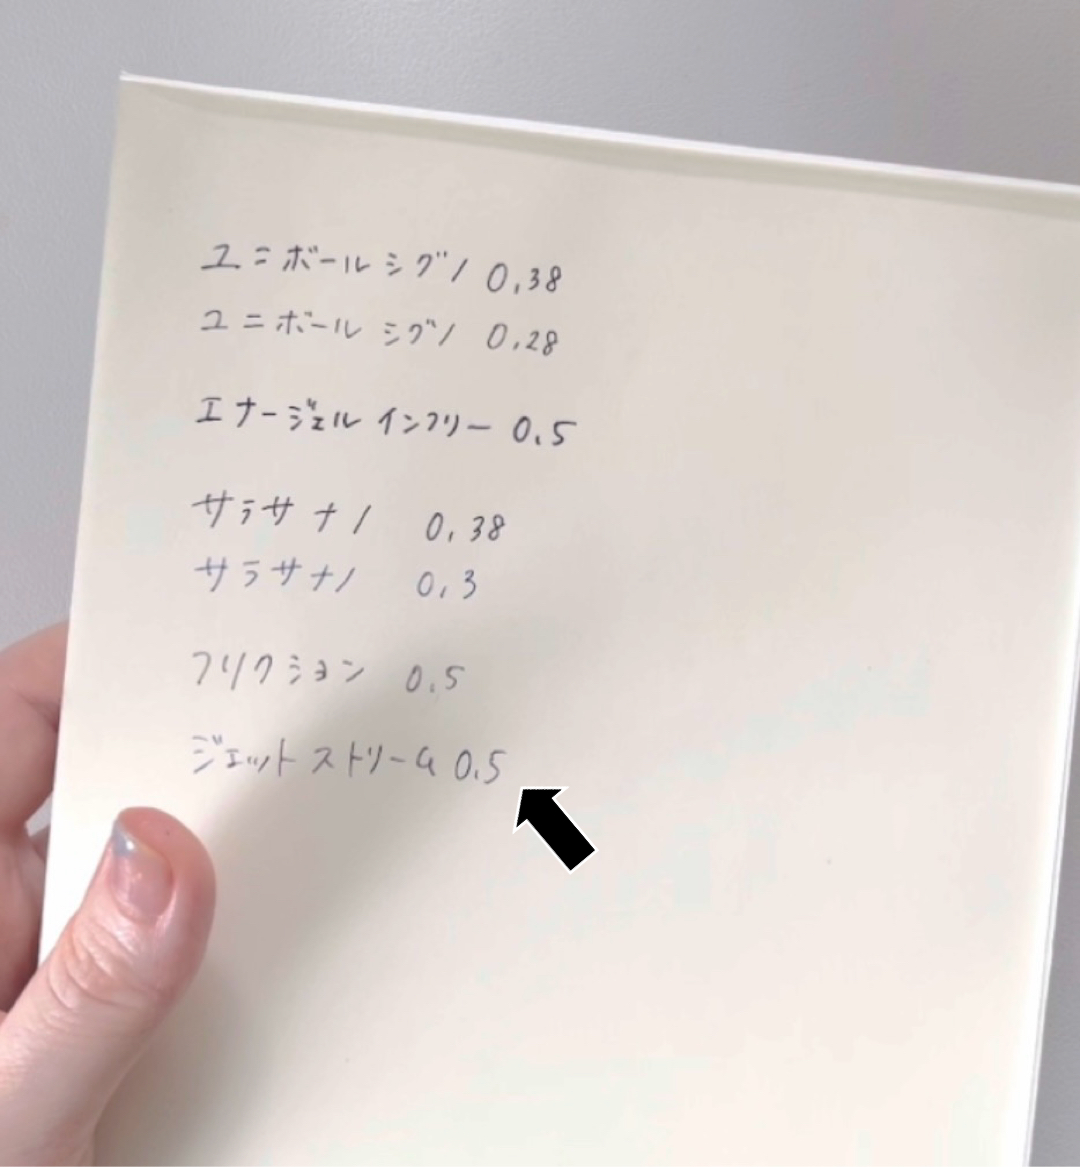 ユニボールシグノ 0.38
ユニボール シグノ 0.28
エナージェル インフリー 0.5
サラサ ナノ 0.38
サラサナノ 0.3
フリクション 0.5
ジェットストリーム 0.5